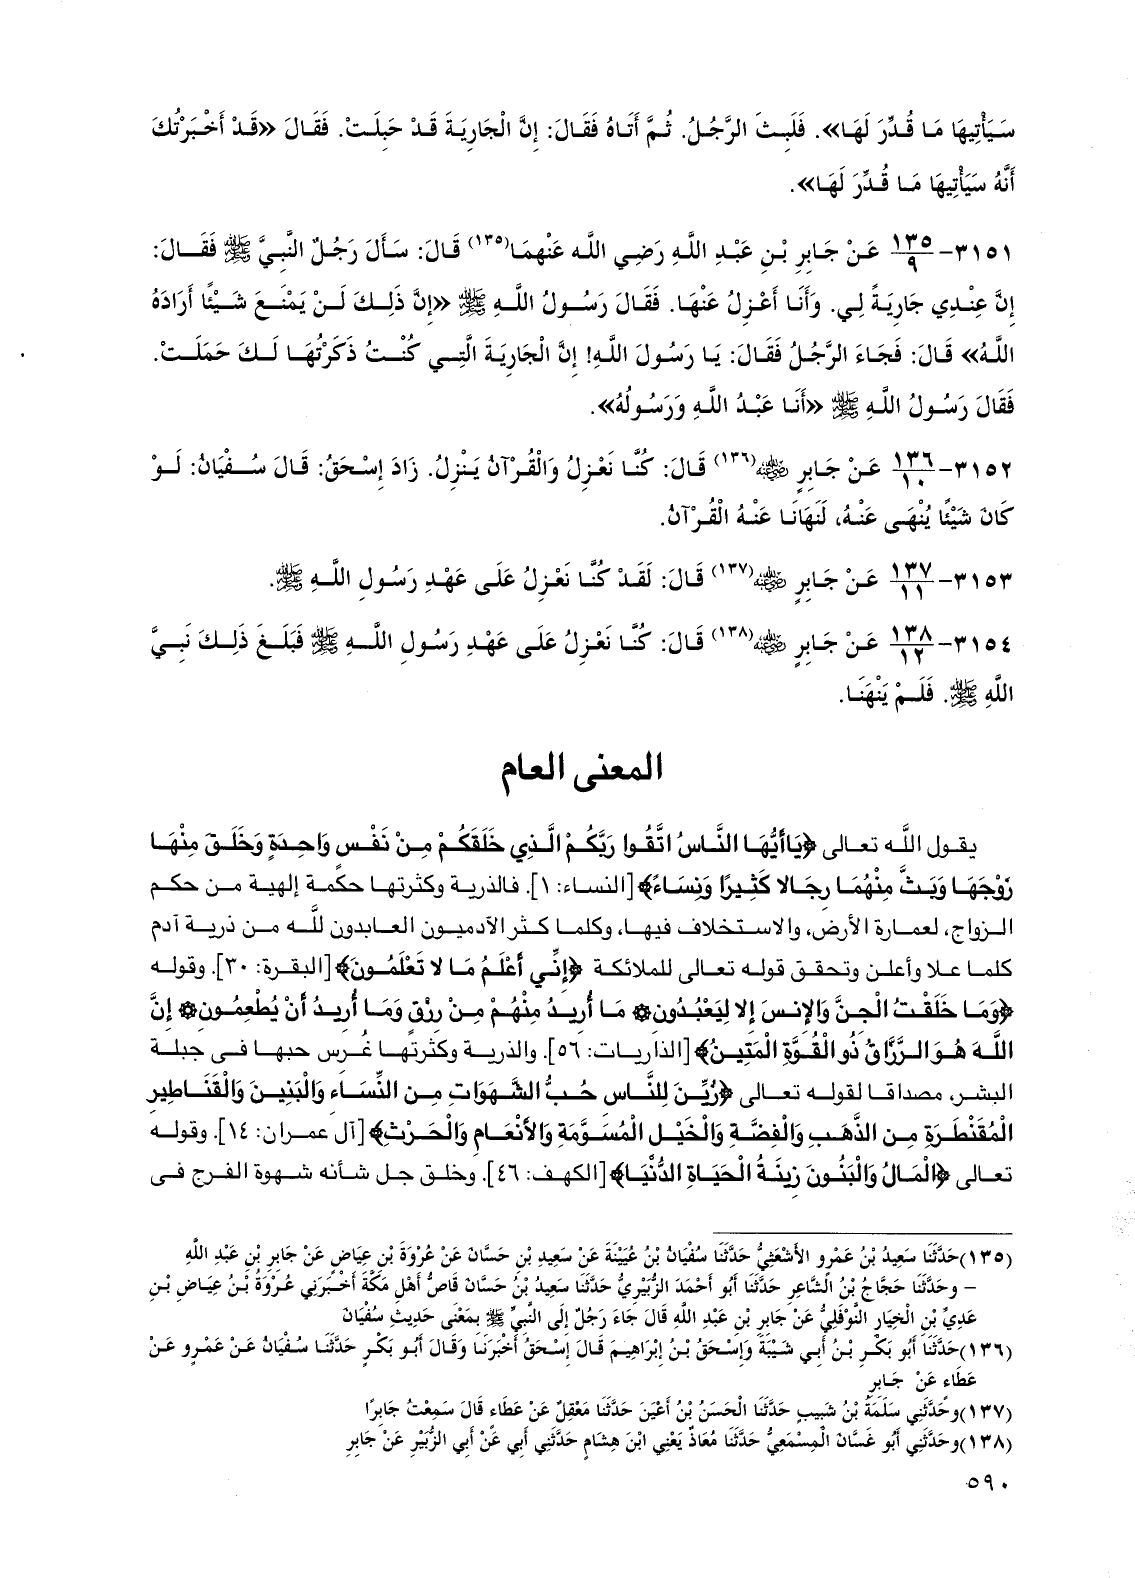 سَيَأْتِيهَا مَا قُدِّرَ لَهَا». فَلَبِثَ الرَّجُلُ. ثُمَّ أَتَاهُ فَقَالَ: إِنَّ الْجَارِيَةَ قَدْ حَبِلَتْ. فَقَالَ «قَدْ أَخْبَرْتُكَ
أَنَّهُ سَيَأْتِيهَا مَا قُدِّرَ لَهَا».
٣١٥١- ١٣٥/٩ عَنْ جَابِرِ بْنِ عَبْدِ اللَّهِ رَضِي اللَّه عَنْهمَا(١٣٥) قَالَ: سَأَلَ رَجُلٌ النَّبِيَّ ﷺ فَقَالَ:
إِنَّ عِنْدِي جَارِيَةً لِي. وَأَنَا أَعْزِلُ عَنْهَا. فَقَالَ رَسُولُ اللَّهِ ﷺ «إِنَّ ذَلِكَ لَنْ يَمْنَعَ شَيْئًا أَرَادَهُ
اللَّهُ» قَالَ: فَجَاءَ الرَّجُلُ فَقَالَ: يَا رَسُولَ اللَّهِ! إِنَّ الْجَارِيَةَ الَّتِي كُنْتُ ذَكَرْتُهَا لَكَ حَمَلَتْ.
فَقَالَ رَسُولُ اللَّهِ ﷺ «أَنَا عَبْدُ اللَّهِ وَرَسُولُهُ».
٣١٥٢- ١٣٦/١٠ عَنْ جَابِرٍ ﷺ(١٣٦) قَالَ: كُنَّا نَعْزِلُ وَالْقُرْآنُ يَنْزِلُ. زَادَ إِسْحَقُ: قَالَ سُفْيَانُ: لَوْ
كَانَ شَيْئًا يُنْهَى عَنْهُ، لَنَهَانَا عَنْهُ الْقُرْآنُ.
٣١٥٣- ١٣٧/١١ عَنْ جَابِرٍ ﷺ(١٣٧) قَالَ: لَقَدْ كُنَّا نَعْزِلُ عَلَى عَهْدِ رَسُولِ اللَّهِ ﷺ.
٣١٥٤- ١٣٨/١٢ عَنْ جَابِرٍ ﷺ(١٣٨) قَالَ: كُنَّا نَعْزِلُ عَلَى عَهْدِ رَسُولِ اللَّهِ ﷺ فَبَلَغَ ذَلِكَ نَبِيَّ
اللَّهِ ﷺ. فَلَمْ يَنْهَنَا.
المعنى العام
يقول اللَّه تعالى ﴿يَاأَيُّهَا النَّاسُ اتَّقُوا رَبَّكُمْ الَّذِي خَلَقَكُمْ مِنْ نَفْسٍ وَاحِدَةٍ وَخَلَقَ مِنْهَا
زَوْجَهَا وَبَثَّ مِنْهُمَا رِجَالا كَثِيرًا وَنِسَاءً﴾ [النساء: ١]. فالذرية وكثرتها حكمة إلهية من حكم
الزواج، لعمارة الأرض، والاستخلاف فيها، وكلما كثر الآدميون العابدون للَّه من ذرية آدم
كلما علا وأعلن وتحقق قوله تعالى للملائكة ﴿إِنِّي أَعْلَمُ مَا لا تَعْلَمُونَ﴾ [البقرة: ٣٠]. وقوله
﴿وَمَا خَلَقْتُ الْجِنَّ وَالإِنسَ إِلا لِيَعْبُدُونِ۞ مَا أُرِيدُ مِنْهُمْ مِنْ رِزْقٍ وَمَا أُرِيدُ أَنْ يُطْعِمُونِ۞ إِنَّ
اللَّهَ هُوَ الرَّزَّاقُ ذُو الْقُوَّةِ الْمَتِينُ﴾ [الذاريات: ٥٦]. والذرية وكثرتها غُرِس حبها في جبلة
البشر، مصداقا لقوله تعالى ﴿زُيِّنَ لِلنَّاسِ حُبُّ الشَّهَوَاتِ مِن النِّسَاءِ وَالْبَنِينَ وَالْقَنَاطِيرِ
الْمُقَنْطَرَةِ مِن الذَّهَبِ وَالْفِضَّةِ وَالْخَيْلِ الْمُسَوَّمَةِ وَالأَنْعَامِ وَالْحَرْثِ﴾ [آل عمران: ١٤]. وقوله
تعالى ﴿الْمَالُ وَالْبَنُونَ زِينَةُ الْحَيَاةِ الدُّنْيَا﴾ [الكهف: ٤٦]. وخلق جل شأنه شهوة الفرج في
(١٣٥) حَدَّثَنَا سَعِيدُ بْنُ عَمْرٍو الأَشْعَثِيُّ حَدَّثَنَا سُفْيَانُ بْنُ عُيَيْنَةَ عَنْ سَعِيدِ بْنِ حَسَّانَ عَنْ عُرْوَةَ بْنِ عِيَاضٍ عَنْ جَابِرِ بْنِ عَبْدِ اللَّهِ
– وحَدَّثَنَا حَجَّاجُ بْنُ الشَّاعِرِ حَدَّثَنَا أَبُو أَحْمَدَ الزُّبَيْرِيُّ حَدَّثَنَا سَعِيدُ بْنُ حَسَّانَ قَاصُّ أَهْلِ مَكَّةَ أَخْبَرَنِي عُرْوَةُ بْنُ عِيَاضِ بْنِ
عَدِيِّ بْنِ الْخِيَارِ النَّوْفَلِيُّ عَنْ جَابِرِ بْنِ عَبْدِ اللَّهِ قَالَ جَاءَ رَجُلٌ إِلَى النَّبِيِّ ﷺ بِمَعْنَى حَدِيثِ سُفْيَانَ
(١٣٦) حَدَّثَنَا أَبُو بَكْرِ بْنُ أَبِي شَيْبَةَ وَإِسْحَقُ بْنُ إِبْرَاهِيمَ قَالَ إِسْحَقُ أَخْبَرَنَا وقَالَ أَبُو بَكْرٍ حَدَّثَنَا سُفْيَانُ عَنْ عَمْرٍو عَنْ
عَطَاءٍ عَنْ جَابِرٍ
(١٣٧) وحَدَّثَنِي سَلَمَةُ بْنُ شَبِيبٍ حَدَّثَنَا الْحَسَنُ بْنُ أَعْيَنَ حَدَّثَنَا مَعْقِلٌ عَنْ عَطَاءٍ قَالَ سَمِعْتُ جَابِرًا
(١٣٨) وحَدَّثَنِي أَبُو غَسَّانَ الْمِسْمَعِيُّ حَدَّثَنَا مُعَاذٌ يَعْنِي ابْنَ هِشَامٍ حَدَّثَنِي أَبِي عَنْ أَبِي الزُّبَيْرِ عَنْ جَابِرٍ
٥٩٠